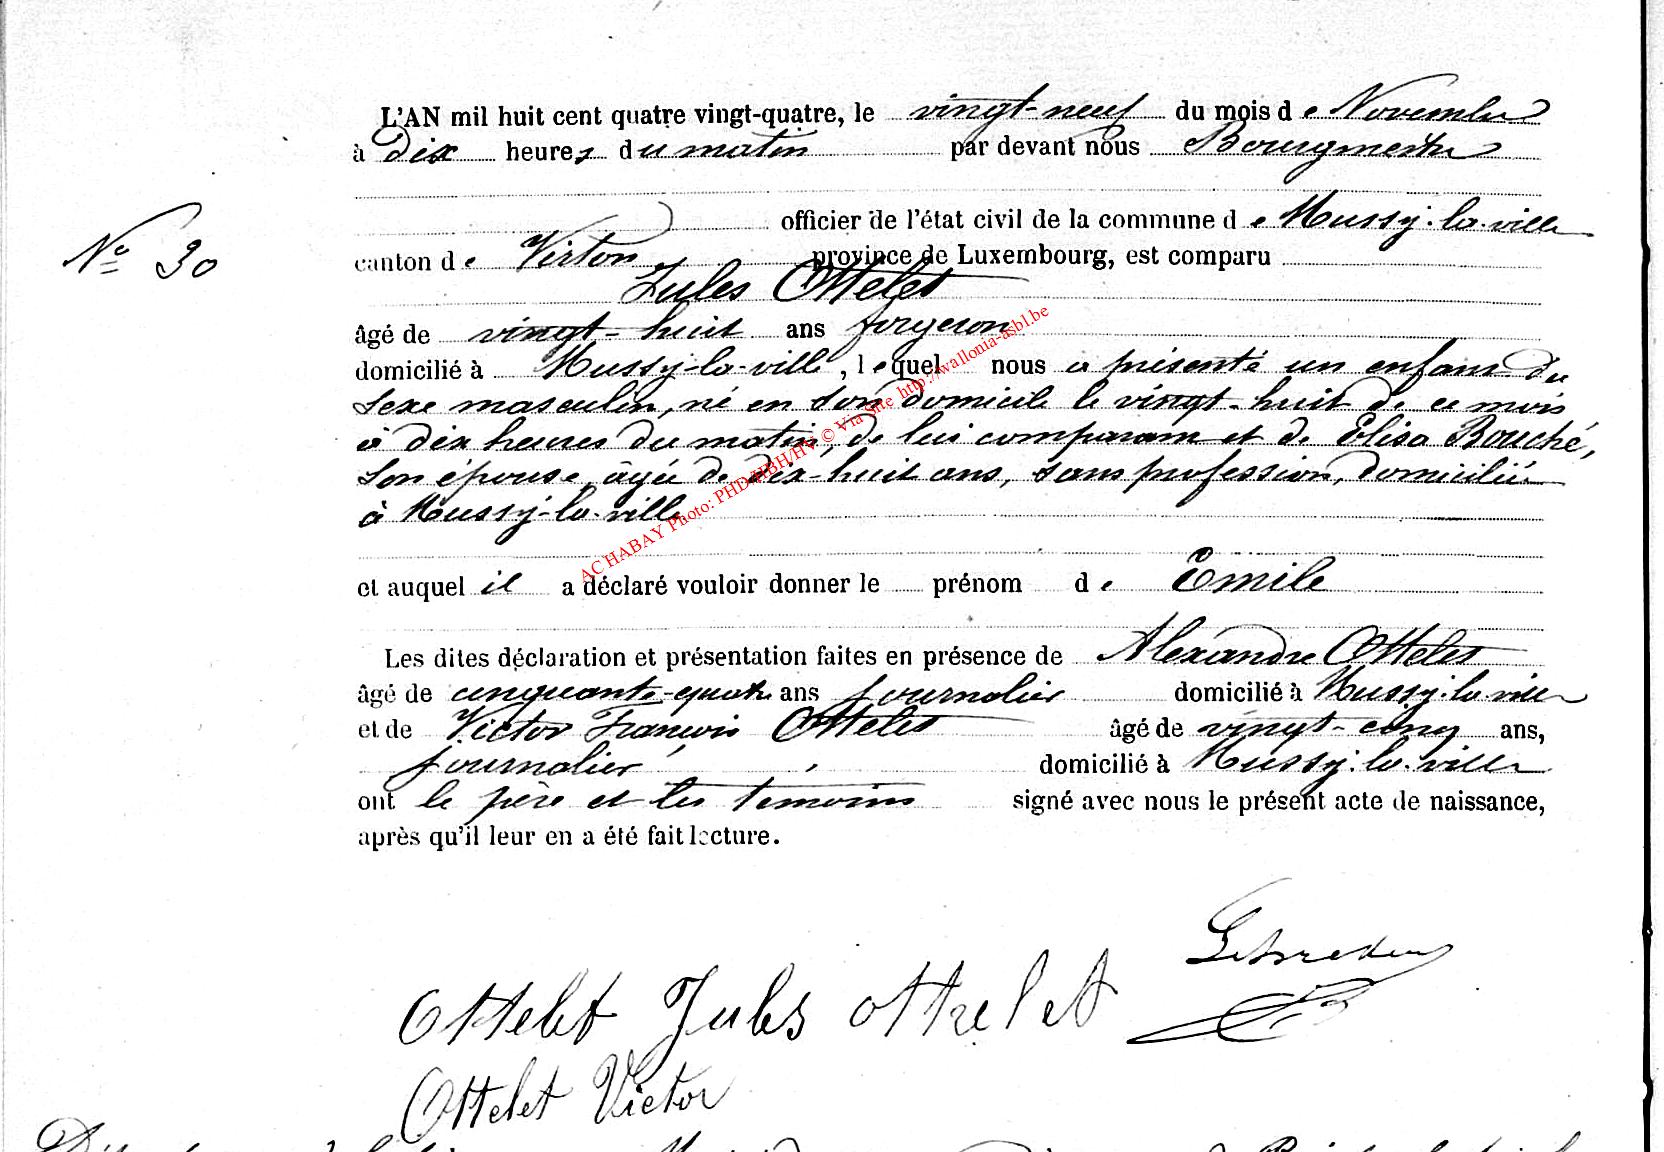 L'AN mil huit cent quatre vingt-quatre, le vingt-neuf du mois de Novembre
à dix heures du matin par devant nous Bourgmestre
officier de l'état civil de la commune de Mussy-la-ville
N° 30
canton de Virton province de Luxembourg, est comparu
Jules Ottelet
âgé de vingt-huit ans forgeron
domicilié à Mussy-la-ville, lequel nous a présenté un enfant du
sexe masculin, né en son domicile le vingt-huit de ce mois
à dix heures du matin, de lui comparant et de Elisa Bouché,
son épouse, âgée de dix-huit ans, sans profession, domiciliée
à Mussy-la-ville
et auquel il a déclaré vouloir donner le prénom de Emile
Les dites déclaration et présentation faites en présence de Alexandre Ottelet
âgé de cinquante-quatre ans journalier domicilié à Mussy-la-ville
et de Victor François Ottelet âgé de vingt-cinq ans,
journalier, domicilié à Mussy-la-ville
ont le père et les témoins signé avec nous le présent acte de naissance,
après qu'il leur en a été fait lecture.
Ottelet Jules ottelet
Ottelet Victor
AC HABAY Photo: PHD/HBH/HV © Via Site http://wallonia-asbl.be